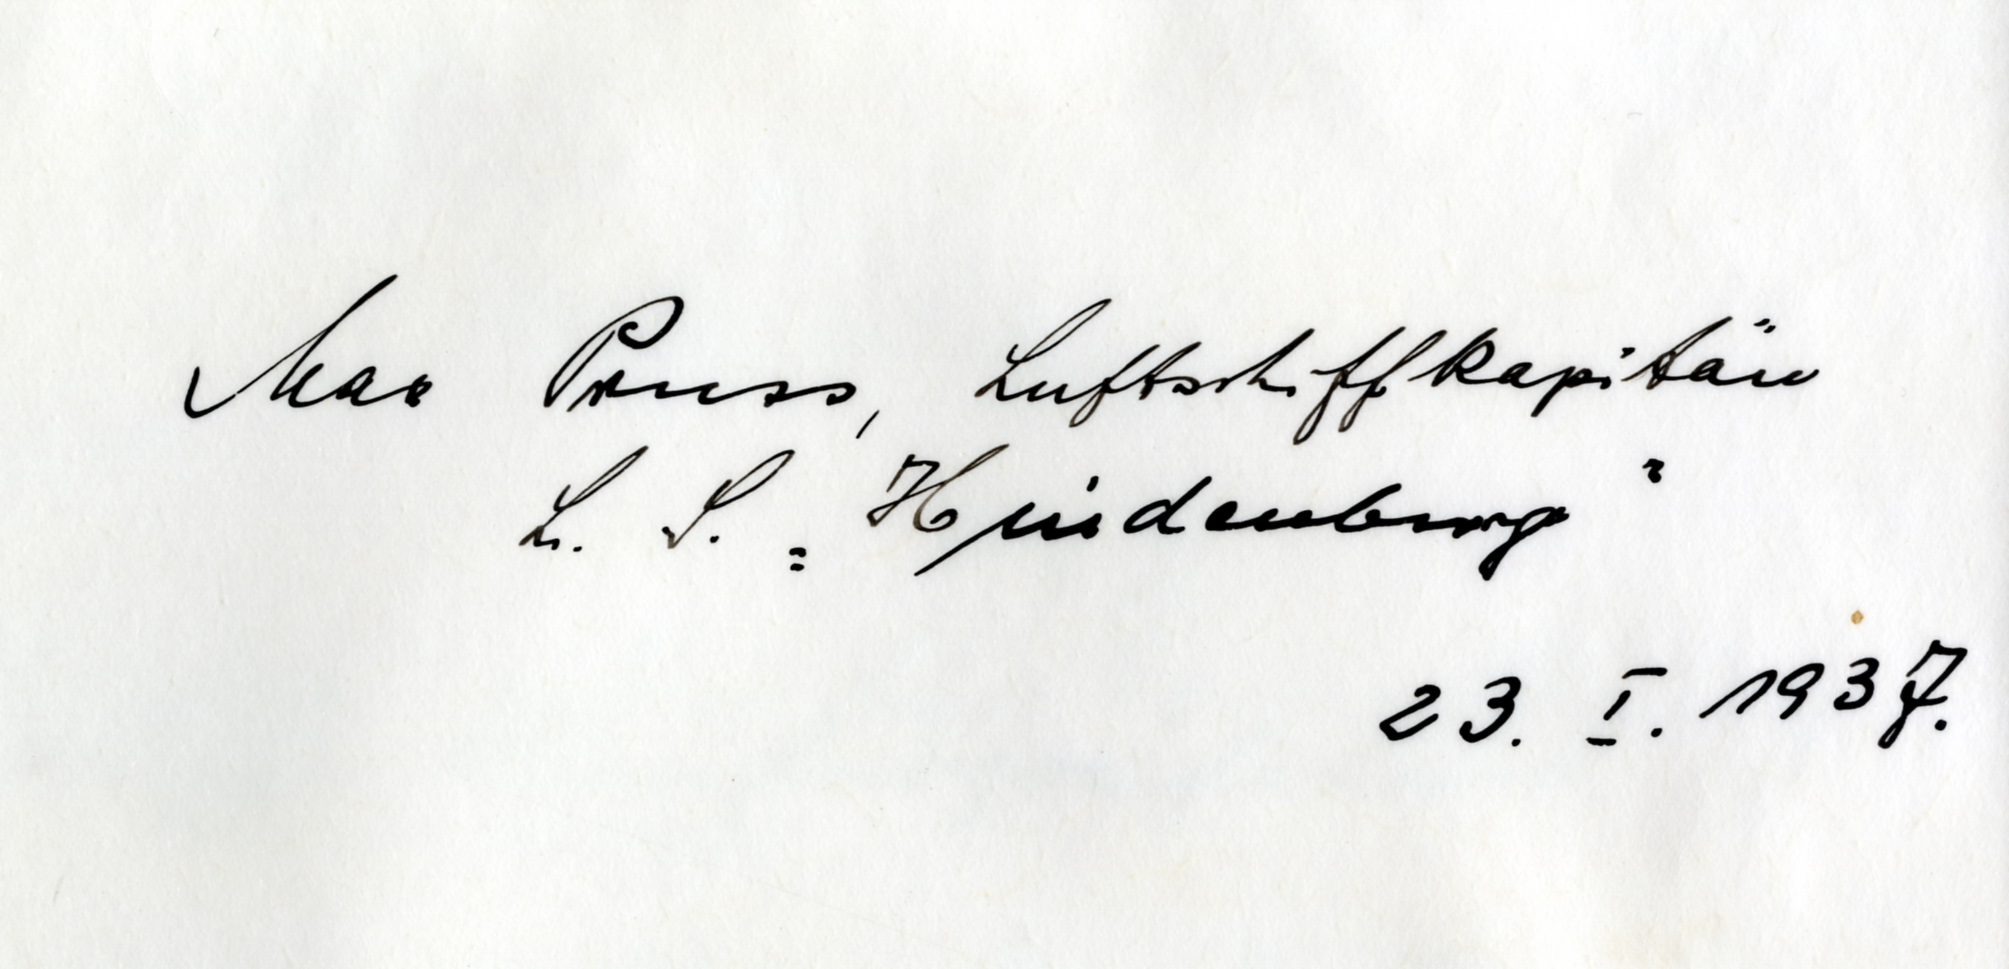 Max Pruss, Luftschiffkapitän
L. S. „Hindenburg"
23. I. 1937.